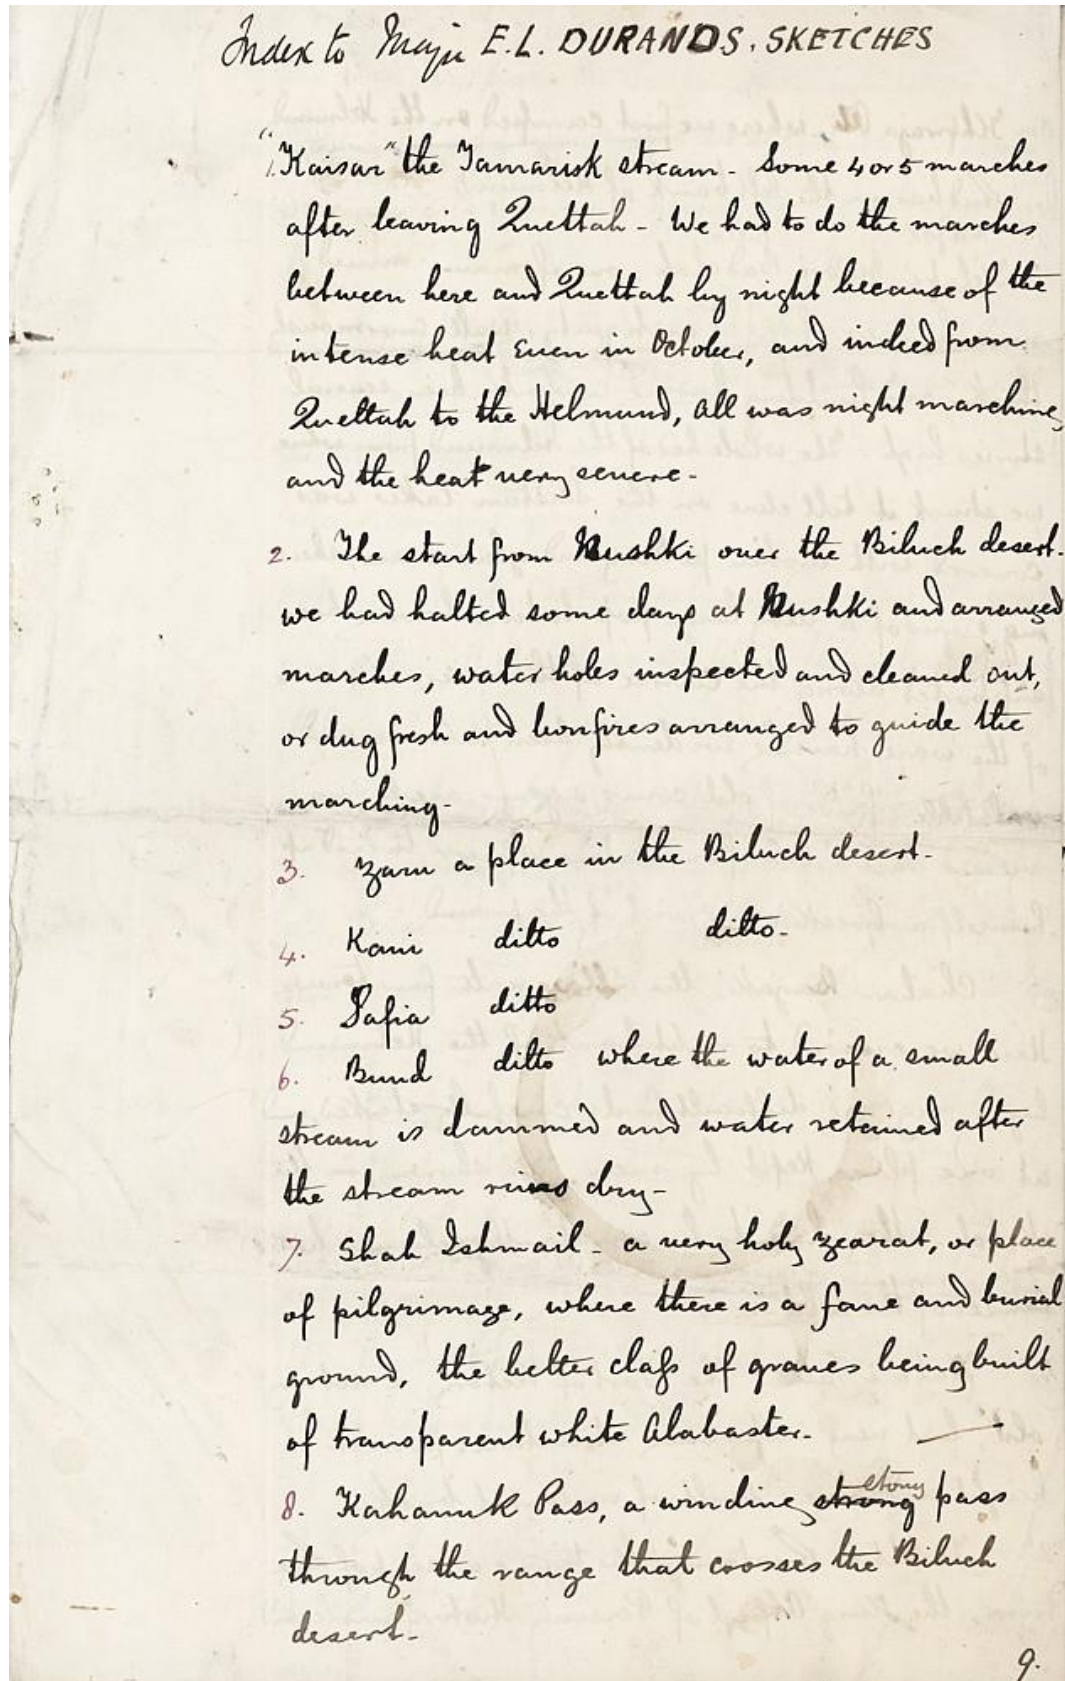 Index to Major E.L. DURANDS. SKETCHES
1. "Kaisar" the Tamarisk stream - Some 4 or 5 marches
after leaving Quettah - We had to do the marches
between here and Quettah by night because of the
intense heat even in October, and indeed from
Quettah to the Helmund, all was night marching
and the heat very severe -
2. The start from Nushki over the Biluch desert.
we had halted some days at Nushki and arranged
marches, water holes inspected and cleaned out,
or dug fresh and bonfires arranged to guide the
marching -
3. Zaru a place in the Biluch desert -
4. Kani ditto ditto -
5. Safia ditto
6. Bund ditto where the water of a small
stream is dammed and water retained after
the stream runs dry -
7. Shah Ishmail - a very holy zearat, or place
of pilgrimage, where there is a fane and burial
ground, the better class of graves being built
of transparent white Alabaster. -
8. Kahanuk Pass, a winding strong stony pass
through the range that crosses the Biluch
desert -
9.